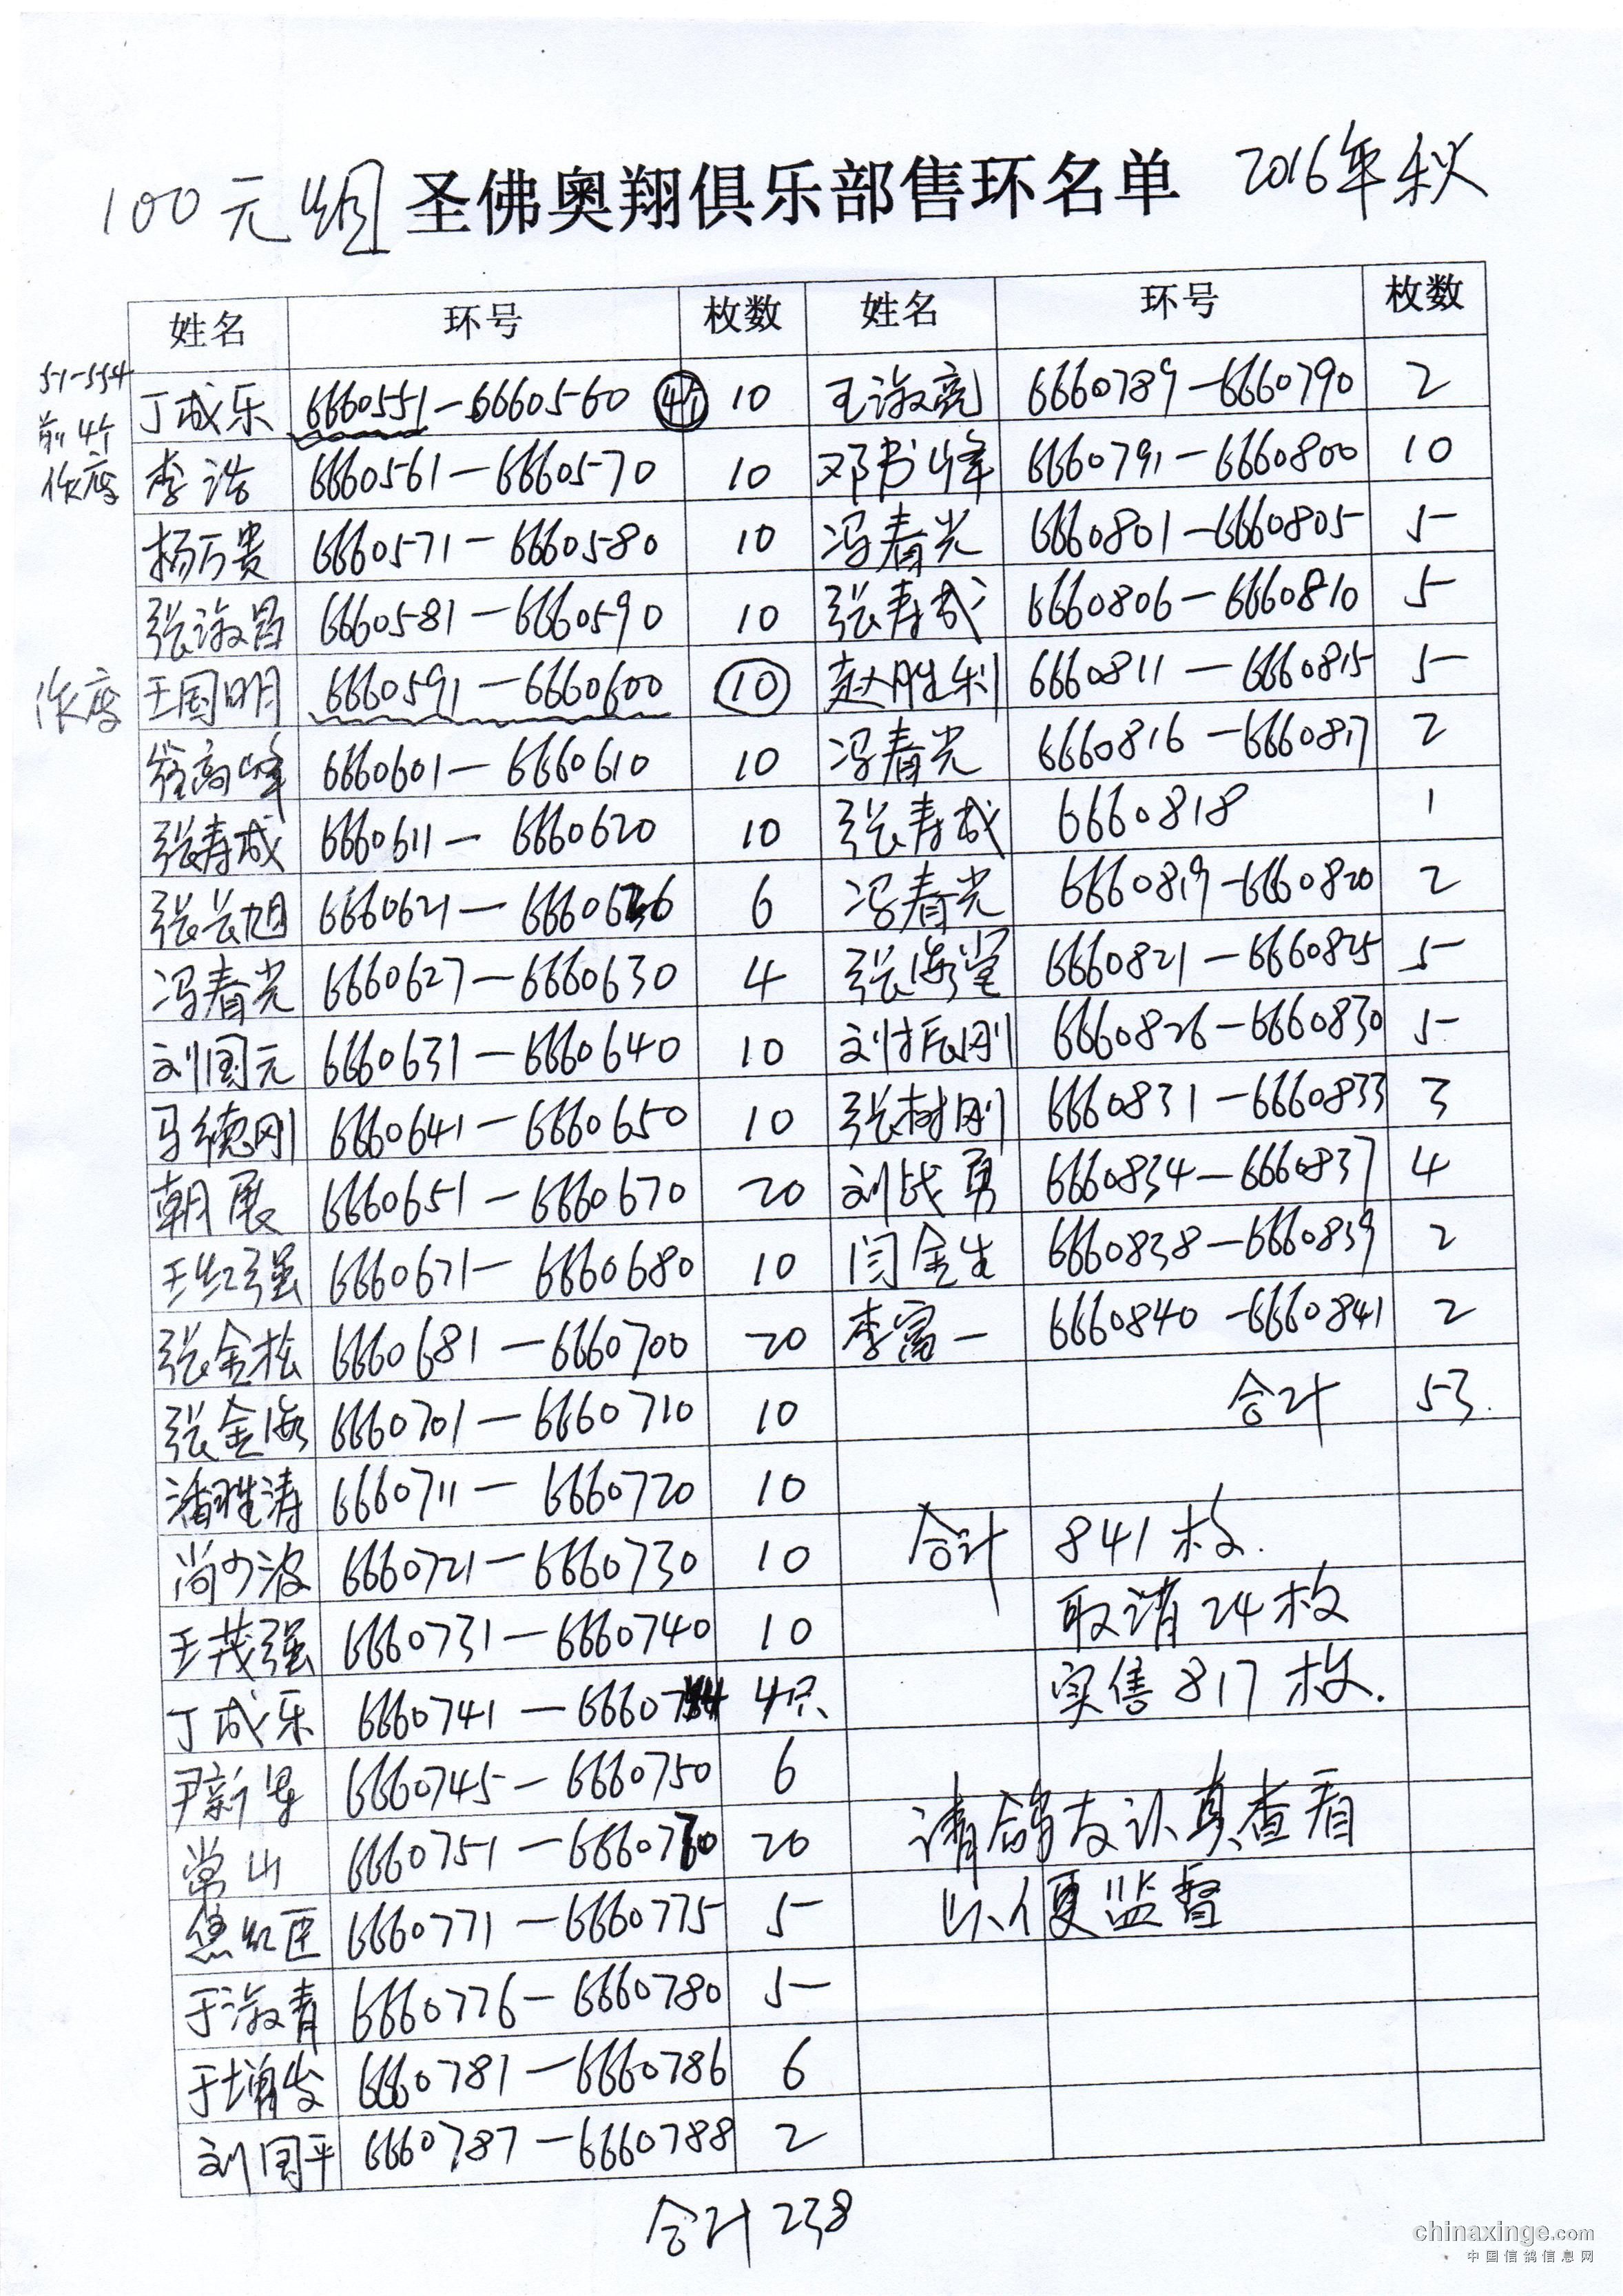 100元组 圣佛奥翔俱乐部售环名单 2016年秋
姓名 环号 枚数 姓名 环号 枚数
51-554
前4个
作废
丁成乐 6660551-6660560 4个 10 王淑亮 6660789-6660790 2
李浩 6660561-6660570 10 邓书峰 6660791-6660800 10
杨万贵 6660571-6660580 10 冯春光 6660801-6660805 5
张淑昌 6660581-6660590 10 张寿成 6660806-6660810 5
作废 王国明 6660591-6660600 10 赵胜利 6660811-6660815 5
高峰 6660601-6660610 10 冯春光 6660816-6660817 2
张寿成 6660611-6660620 10 张寿成 6660818 1
张长旭 6660621-6660626 6 冯春光 6660819-6660820 2
冯春光 6660627-6660630 4 张海堂 6660821-6660825 5
刘国元 6660631-6660640 10 刘振刚 6660826-6660830 5
马德刚 6660641-6660650 10 张树刚 6660831-6660833 3
朝展 6660651-6660670 20 刘战勇 6660834-6660837 4
王红强 6660671-6660680 10 闫金生 6660838-6660839 2
张金松 6660681-6660700 20 李富一 6660840-6660841 2
张金海 6660701-6660710 10 合计 53.
潘胜涛 6660711-6660720 10
尚少波 6660721-6660730 10 合计 841枚.
王茂强 6660731-6660740 10 取请24枚
丁成乐 6660741-6660744 4只 实售817枚.
尹新 6660745-6660750 6
常山 6660751-6660770 20 请鸽友认真查看
6660771-6660775 5 以便监督
于淑青 6660776-6660780 5
于增发 6660781-6660786 6
刘国平 6660787-6660788 2
合计238
chinaxinge.com
中国信鸽信息网